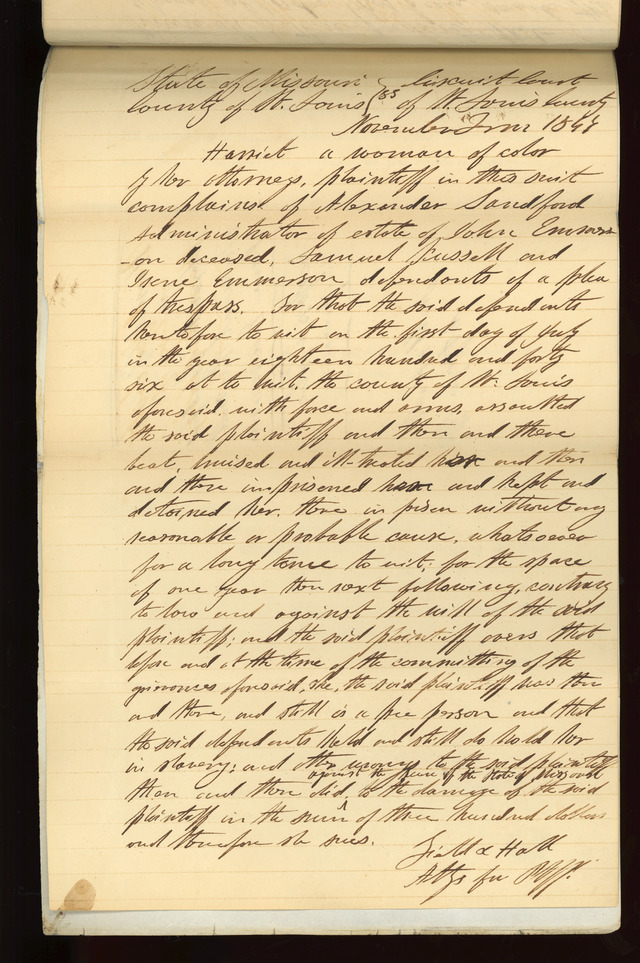 State of Missouri } ss Circuit Court
County of St. Louis } of St. Louis County
November Term 1847
Harriet a woman of color
by her attorneys, plaintiff in this suit
complains of Alexander Sandford
administrator of estate of John Emmers
-on deceased, Samuel Russell and
Irene Emmerson defendants of a plea
of trespass. For that the said defendants
heretofore to wit on the first day of July
in the year eighteen hundred and forty
six at to wit, the county of St. Louis
aforesaid, with force and arms, assaulted
the said plaintiff and then and there
beat, bruised and ill-treated her and then
and there imprisoned her and kept and
detained her there in prison without any
reasonable or probable cause, whatsoever
for a long time to wit; for the space
of one year then next following, contrary
to law and against the will of the said
plaintiff; and the said plaintiff avers that
before and at the time of the committing of the
grievances aforesaid, she, the said plaintiff was then
and there, and still is a free person and that
the said defendants held and still do hold her
in slavery; and other wrongs to the said plaintiff
against the peace of the State of Missouri
then and there did, to the damage of the said
plaintiff in the sum of three hundred dollars
and therefore she sues.
Field & Hall
Attys for Plff.